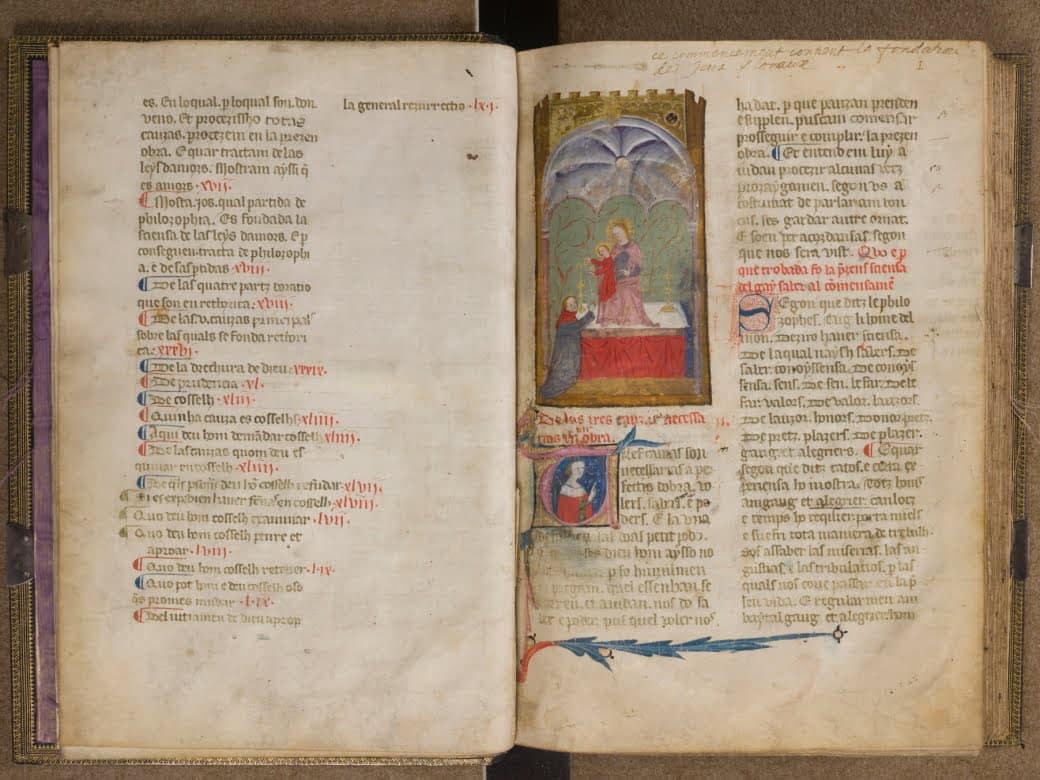 es. En loqual. p loqual son. don
veno. Et procezissho totas
cauzas. procezem en la prezen
obra. E quar tractam de las
leys damors. Mostram ayssi q̄
es amors. xvij.
Mosta. jos. qual partida de
philozophia. Es fondada la
sciensa de las leys damors. E p
conseguen tracta de philozophi
a. e de sas ptidas xviij.
De las quatre partz doratio
que son en rethorica. xviij.
De las .v. cauzas principals
sobre las quals se fonda rethori
ca. xxxvj.
De la drechura de dieu. xxxix.
De prudencia. xl.
De cosselh. xliij.
Quinha cauza es cosselhs xliiij.
Aqui deu hom demādar cosselh xliiij.
De las cauzas quom deu es
quivar en cosselh. xliiij.
De q̄ls psonas deu hō cosselh refudar. xlvij.
Si es expedien haver fēnas en cosselh. xlviij.
Quo deu hom cosselh examinar. lvij.
Quo deu hom cosselh penre et
aproar. lviij.
Quo deu hom cosselh retener. lix.
Quo pot hom e deu cosselh oso
q̄s promes mudar. lix.
Del jutiamen de dieu aprop
la general rezurrectio. lxj.
ce commencement contient la fondation
des Jeux Floraux
1
De las tres cauzas necessa
rias en obra.
Tres cauzas son
necessarias a pe
fecta dobra. vo
lers. sabers. e po
ders. E la una
ses dieu hom aysso no
p so humilmen
pregam. quel essenhan se
et aiudan. nos do sa
ber e poder. pus quel voler nos
ha dat. p que puscan prenden
e supplen. puscam comensar
prosseguir e complir. la prezen
obra. Et entendem luy a
judan procezir alcunas vetz
prozaygamen. segon us a
costumat de parlar am ton
cas. ses gardar autre ornat.
E soen per acordansas. segon
que nos sera vist. Quo e p
que trobada fo la p̄zens sciensa
del gay saber al comensamē
Segon que ditz le philo
zophes. Tug li home del
mon. Dezirō haver sciensa.
De la qual naysh sabers. De
saber conoyssensa. De conoys
sensa. sens. De sen. be far. De be
far valors. De valor. lauzors.
De lauzor. honors. Donor pretz.
De pretz. plazers. De plazer.
gaug. et alegriers. E quar
segon que ditz catos. e certa ex
periensa ho mostra. Totz homs
am gaug et alegrier. can locz
e temps lo requier. porta miels
e suefri tota maniera de trebalh.
Sos assaber las miserias. las an
gustias. e las tribulatios. p las
quals nos cove passar en la p̄
sen vida. E regularmen am
baytal gaug et alegrier. hom